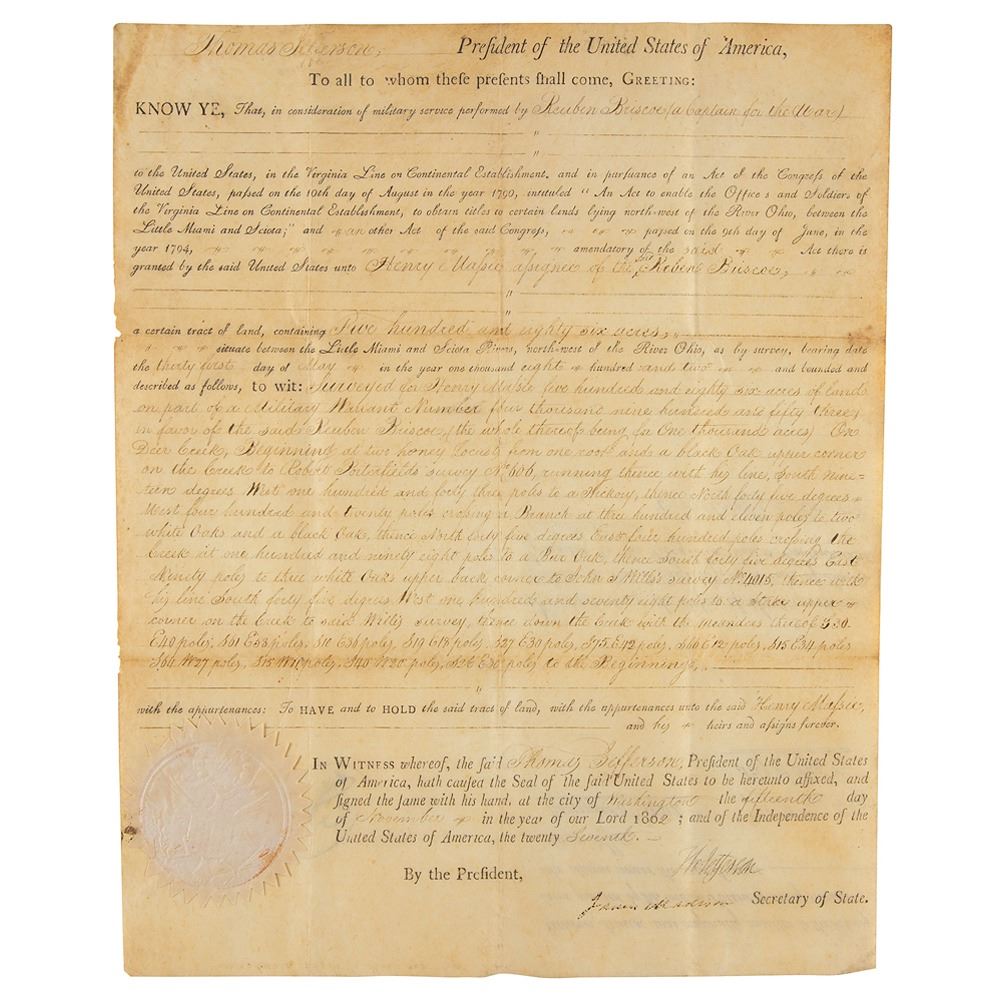 Thomas Jefferson, President of the United States of America,
To all to whom these presents shall come, GREETING:
KNOW YE, That, in consideration of military service performed by Reuben Briscoe (a Captain for the War)
"
"
to the United States, in the Virginia Line on Continental Establishment, and in pursuance of an Act of the Congress of the
United States, passed on the 10th day of August in the year 1790, intituled "An Act to enable the Officers and Soldiers of
the Virginia Line on Continental Establishment, to obtain titles to certain lands lying north-west of the River Ohio, between the
Little Miami and Sciota;" and an other Act of the said Congress, passed on the 9th day of June, in the
year 1794, amendatory of the said Act there is
granted by the said United States unto Henry Massie assignee of the said Reuben Briscoe,
"
a certain tract of land, containing Five hundred and eighty six acres,
situate between the Little Miami and Sciota Rivers, north-west of the River Ohio, as by survey, bearing date
the thirty first day of May in the year one thousand eight hundred and two and bounded and
described as follows, to wit: Surveyed for Henry Massie five hundred and eighty six acres of land
on part of a Military Warrant Number four thousand nine hundred and fifty three,
in favor of the said Reuben Briscoe, (the whole thereof being for One thousand acres) On
Deer Creek, Beginning at two honey locusts from one root and a black Oak upper corner
on the Creek to Robert Porterfields survey No. 606, running thence with his line, South nine=
=teen degrees West one hundred and forty three poles to a Hickory, thence North forty five degrees
West four hundred and twenty poles crossing a Branch at three hundred and eleven poles to two
white Oaks and a black Oak, thence North forty five degrees East four hundred poles crossing the
Creek at one hundred and ninety eight poles to a Bur Oak, thence South forty five degrees East
Ninety poles to three white Oaks upper back corner to John S Wills survey No. 4015, thence with
his line South forty five degrees West one hundred and seventy eight poles to a upper
corner on the Creek to said Wills survey, thence down the Creek with the meanders thereof S30
E40 poles, S61 E58 poles, S10 E36 poles, S19 E18 poles, S27 E30 poles, S75 E42 poles, S60 E12 poles, S15 E34 poles
S64 W27 poles, S15 W10 poles, S40 W20 poles, S26 E30 poles to the Beginning,
"
with the appurtenances: To HAVE and to HOLD the said tract of land, with the appurtenances unto the said Henry Massie,
and his heirs and assigns forever.
IN WITNESS whereof, the said Thomas Jefferson, President of the United States
of America, hath caused the Seal of the said United States to be hereunto affixed, and
signed the same with his hand, at the city of Washington the fifteenth day
of November in the year of our Lord 1802 ; and of the Independence of the
United States of America, the twenty Seventh.
Th: Jefferson
By the President,
James Madison Secretary of State.